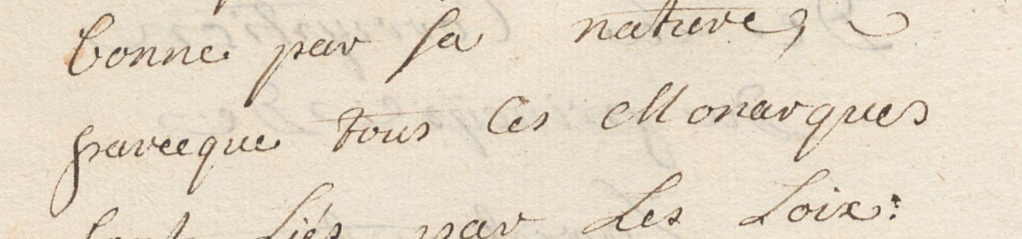 bonne par sa nature,
parceque tous les Monarques
sont Liés par Les Loix: